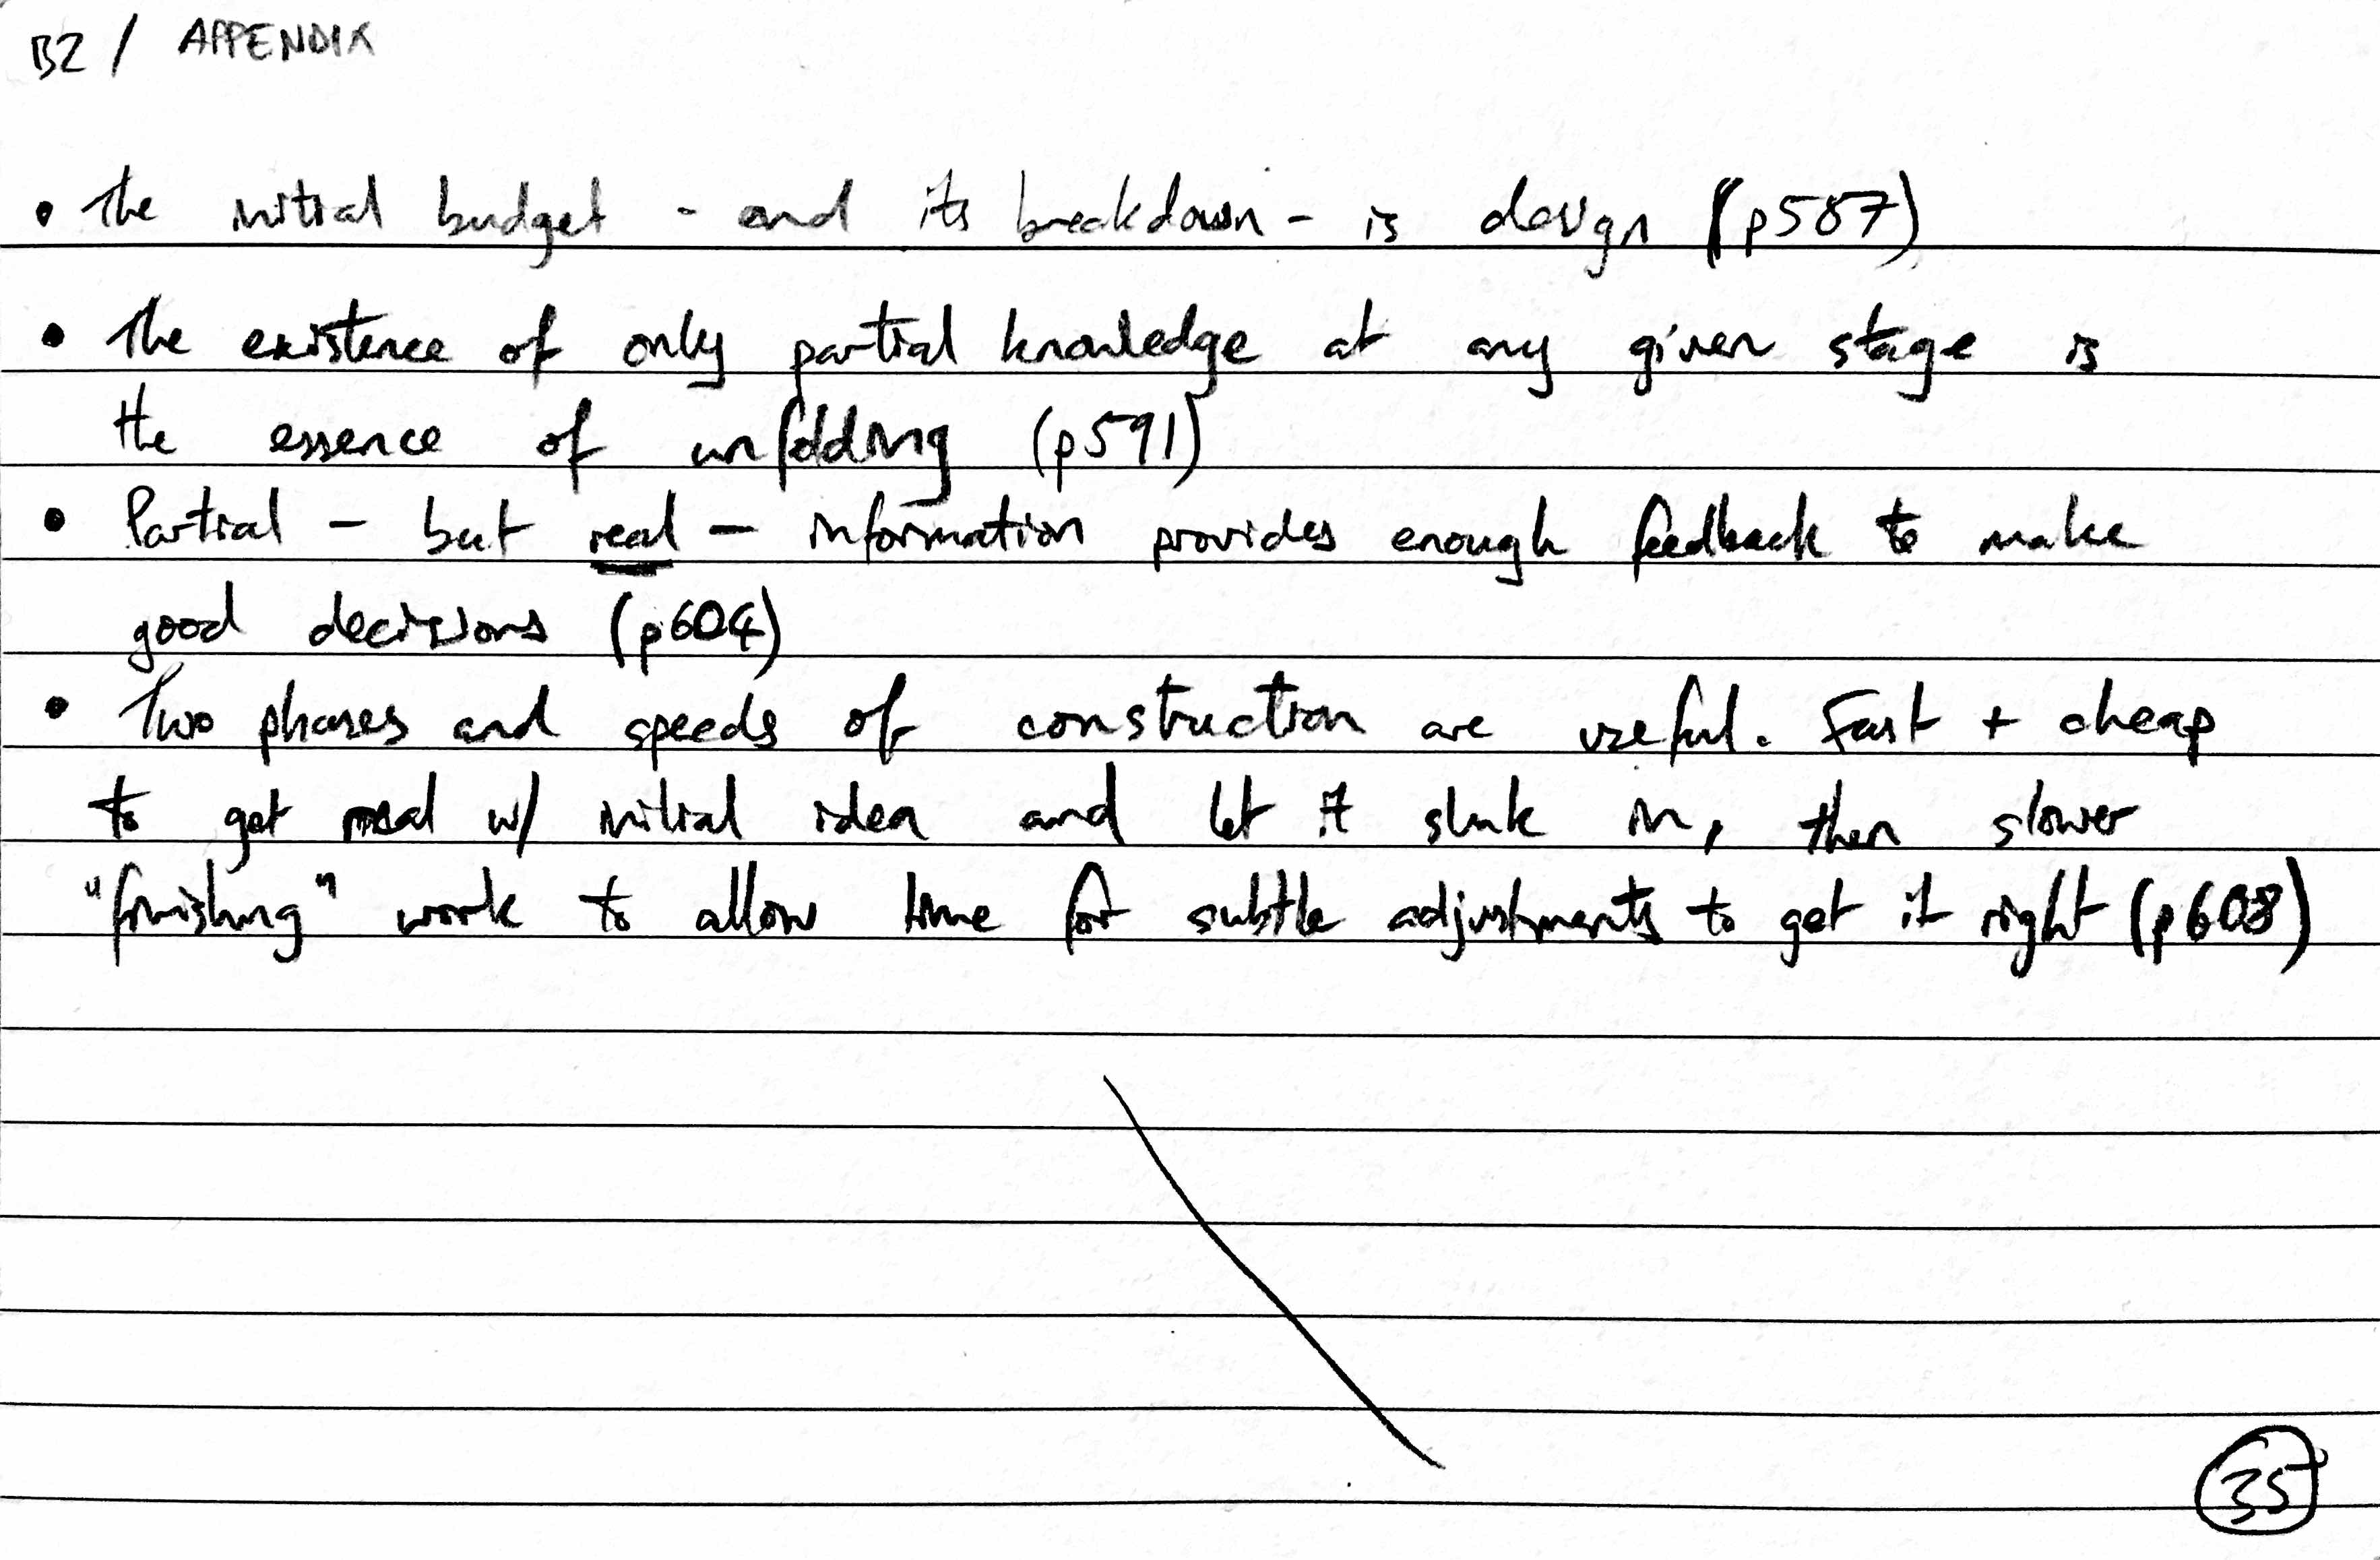 B2 / APPENDIX
• The initial budget - and its breakdown - is design (p587)
• The existence of only partial knowledge at any given stage is
the essence of unfolding (p591)
• Partial - but real - information provides enough feedback to make
good decisions (p604)
• Two phases and speeds of construction are useful. Fast + cheap
to get real w/ initial idea and let it in, then slower
"finishing" work to allow time for subtle adjustments to get it right (p608)
35